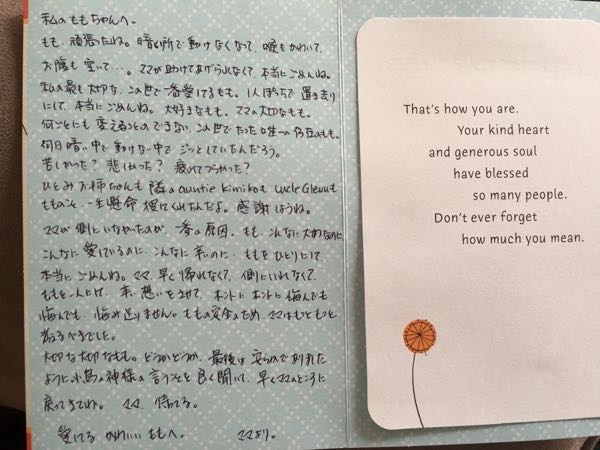 私のももちゃんへ。
もも、頑張ったね。暗い所で動けなくなて、喉もかわいて、
お腹も空いて…。ママが助けてあげられなくて、本当にごめんね。
私の最も大切な、この世で一番愛してるもも。1人ぼっちで置き去り
にして、本当にごめんね。大好きなもも、ママの大切なもも。
何ごとにも変えることのできない、この世でたった唯一の存在のもも。
何日暗い中で動けない中でジッとしていたんだろう。
苦しかった？悲しかった？疲れてつらかった？
ひとみお姉ちゃんも隣のauntie KimikoもUncle Glennも
もものこと、一生懸命捜してくれたんだよ。感謝しようね。
ママが側にいなかったのが、一番の原因。もも、こんなに大切なのに
こんなに愛しているのに、こんなに辛いのに、ももをひとりにして
本当にごめんね。ママ、早く帰れなくて、側にいれなくて、
ももを一人にして、辛い想いをさせて、ホントにホントに悔んでも
悔んでも、悔み送りません。ももの安全のため、ママはもっともっと
べきでした。
大切な大切なもも。どうかどうか、最後は安らので
ように小鳥の神様の言うことを良く聞いて、早くママのところに
戻ってきてね。ママ、待ってる。
愛してる かわいい ももへ。 ママより。
That's how you are.
Your kind heart
and generous soul
have blessed
so many people.
Don't ever forget
how much you mean.